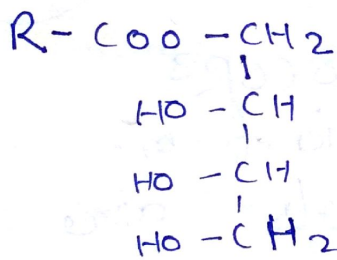 R - COO - CH2
HO - CH
HO - CH
HO - CH2